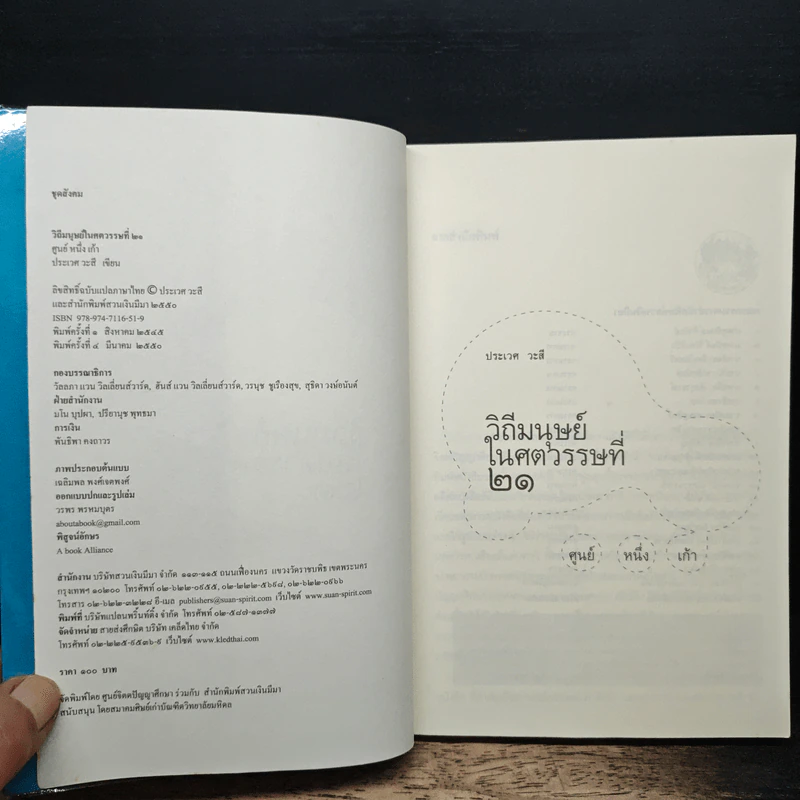 ชุดสังคม
วิถีมนุษย์ในศตวรรษที่ ๒๑
ศูนย์ หนึ่ง เก้า
ประเวศ วะสี เขียน
ลิขสิทธิ์ฉบับแปลภาษาไทย © ประเวศ วะสี
และสำนักพิมพ์สวนเงินมีมา ๒๕๕๐
ISBN 978-974-7116-51-9
พิมพ์ครั้งที่ ๑ สิงหาคม ๒๕๔๕
พิมพ์ครั้งที่ ๔ มีนาคม ๒๕๕๐
กองบรรณาธิการ
วัลลภา แวน วิลเลี่ยนส์วาร์ด, ฮันส์ แวน วิลเลี่ยนส์วาร์ด, วรนุช ชูเรืองสุข, สุธิดา วงษ์อนันต์
ฝ่ายสำนักงาน
มโน บุปผา, ปรียานุช พุทธมา
การเงิน
พันธิพา คงถาวร
ภาพประกอบต้นแบบ
เฉลิมพล พงศ์เจตพงศ์
ออกแบบปกและรูปเล่ม
วรพร พรหมบุตร
aboutabook@gmail.com
พิสูจน์อักษร
A book Alliance
สำนักงาน บริษัทสวนเงินมีมา จำกัด ๑๑๓-๑๑๕ ถนนเฟื่องนคร แขวงวัดราชบพิธ เขตพระนคร
กรุงเทพฯ ๑๐๒๐๐ โทรศัพท์ ๐๒-๖๒๒-๐๙๕๕, ๐๒-๒๒๒-๕๖๙๘, ๐๒-๖๒๒-๐๙๖๖
โทรสาร ๐๒-๖๒๒-๓๒๒๘ อี-เมล publishers@suan-spirit.com เว็บไซต์ www.suan-spirit.com
พิมพ์ที่ บริษัทแปลนพริ้นท์ติ้ง จำกัด โทรศัพท์ ๐๒-๕๘๗-๑๓๗๗
จัดจำหน่าย สายส่งศึกษิต บริษัท เคล็ดไทย จำกัด
โทรศัพท์ ๐๒-๒๒๕-๙๕๓๖-๙ เว็บไซต์ www.kledthai.com
ราคา ๑๐๐ บาท
จัดพิมพ์โดย ศูนย์จิตตปัญญาศึกษา ร่วมกับ สำนักพิมพ์สวนเงินมีมา
สนับสนุน โดยสมาคมศิษย์เก่าบัณฑิตวิทยาลัยมหิดล
ประเวศ วะสี
วิถีมนุษย์
ในศตวรรษที่
๒๑
ศูนย์ หนึ่ง เก้า